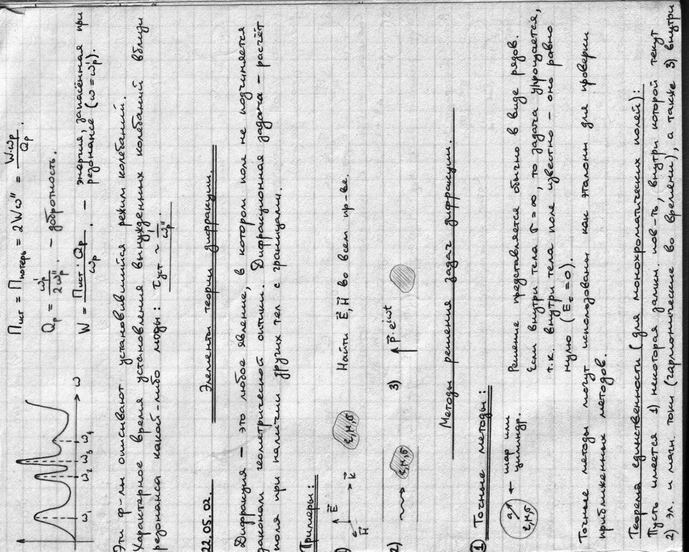 Пист = Ппотерь = 2Wω'' = W·ωp / Qp .
Qp = ωp' / 2ωp'' . – добротность.
W = Пист · Qp / ωp . – энергия, запасённая при
резонансе (ω = ωp').
ω1 ω2 ω3 ω4 ω
Эти ф-лы описывают установившийся режим колебаний.
Характерное время установления вынужденных колебаний вблизи
резонанса какой-либо моды: τуст ~ 1/ωp''
22.05.02. Элементы теории дифракции.
Дифракция – это любое явление, в котором поле не подчиняется
законам геометрической оптики. Дифракционная задача – расчёт
поля при наличии других тел с границами.
Примеры:
1) E H k ε, μ, σ Найти E, H во всем пр-ве.
2) ε, μ, σ 3) p·e^iωt
Методы решения задач дифракции.
① Точные методы:
a ε, μ, σ ← шар или
цилиндр.
Решение представляется обычно в виде рядов.
Если внутри тела σ = ∞, то задача упрощается,
т.к. внутри тела поле известно – оно равно
нулю (Eτ = 0).
Точные методы могут использованы как эталоны для проверки
приближенных методов.
Теорема единственности (для монохроматических полей):
Пусть имеется 1) некоторая замкн. пов-ть, внутри которой текут
2) эл. и магн. токи (гармонические во времени), а также 3) внутри